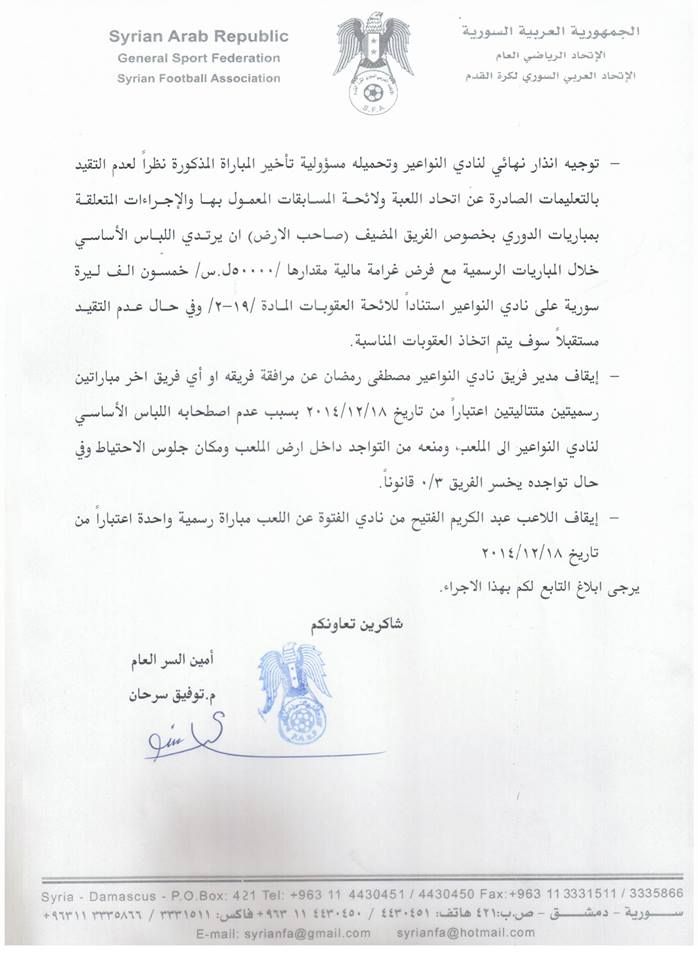 Syrian Arab Republic
General Sport Federation
Syrian Football Association
الجمهورية العربية السورية
الإتحاد الرياضي العام
الإتحاد العربي السوري لكرة القدم
S.F.A
– توجيه انذار نهائي لنادي النواعير وتحميله مسؤولية تأخير المباراة المذكورة نظراً لعدم التقيد
بالتعليمات الصادرة عن اتحاد اللعبة ولائحة المسابقات المعمول بها والإجراءات المتعلقة
بمباريات الدوري بخصوص الفريق المضيف (صاحب الارض) ان يرتدي اللباس الأساسي
خلال المباريات الرسمية مع فرض غرامة مالية مقدارها /٥٠٠٠٠ل.س/ خمسون الف ليرة
سورية على نادي النواعير استناداً للائحة العقوبات المادة /١٩-٢/ وفي حال عدم التقيد
مستقبلاً سوف يتم اتخاذ العقوبات المناسبة.
– إيقاف مدير فريق نادي النواعير مصطفى رمضان عن مرافقة فريقه او أي فريق اخر مباراتين
رسميتين متتاليتين اعتباراً من تاريخ ٢٠١٤/١٢/١٨ بسبب عدم اصطحابه اللباس الأساسي
لنادي النواعير الى الملعب، ومنعه من التواجد داخل ارض الملعب ومكان جلوس الاحتياط وفي
حال تواجده يخسر الفريق ٠/٣ قانوناً.
– إيقاف اللاعب عبد الكريم الفتيح من نادي الفتوة عن اللعب مباراة رسمية واحدة اعتباراً من
تاريخ ٢٠١٤/١٢/١٨
يرجى ابلاغ التابع لكم بهذا الاجراء.
شاكرين تعاونكم
أمين السر العام
م.توفيق سرحان
Syria - Damascus - P.O.Box: 421 Tel: +963 11 4430451 / 4430450 Fax:+963 11 3331511 / 3335866
سورية - دمشق - ص.ب:٤٢١ هاتف: ٤٤٣٠٤٥١ / ٤٤٣٠٤٥٠ ١١ ٩٦٣+ فاكس: ٣٣٣١٥١١ / ٣٣٣٥٨٦٦ ٩٦٣١١+
E-mail: syrianfa@gmail.com syrianfa@hotmail.com